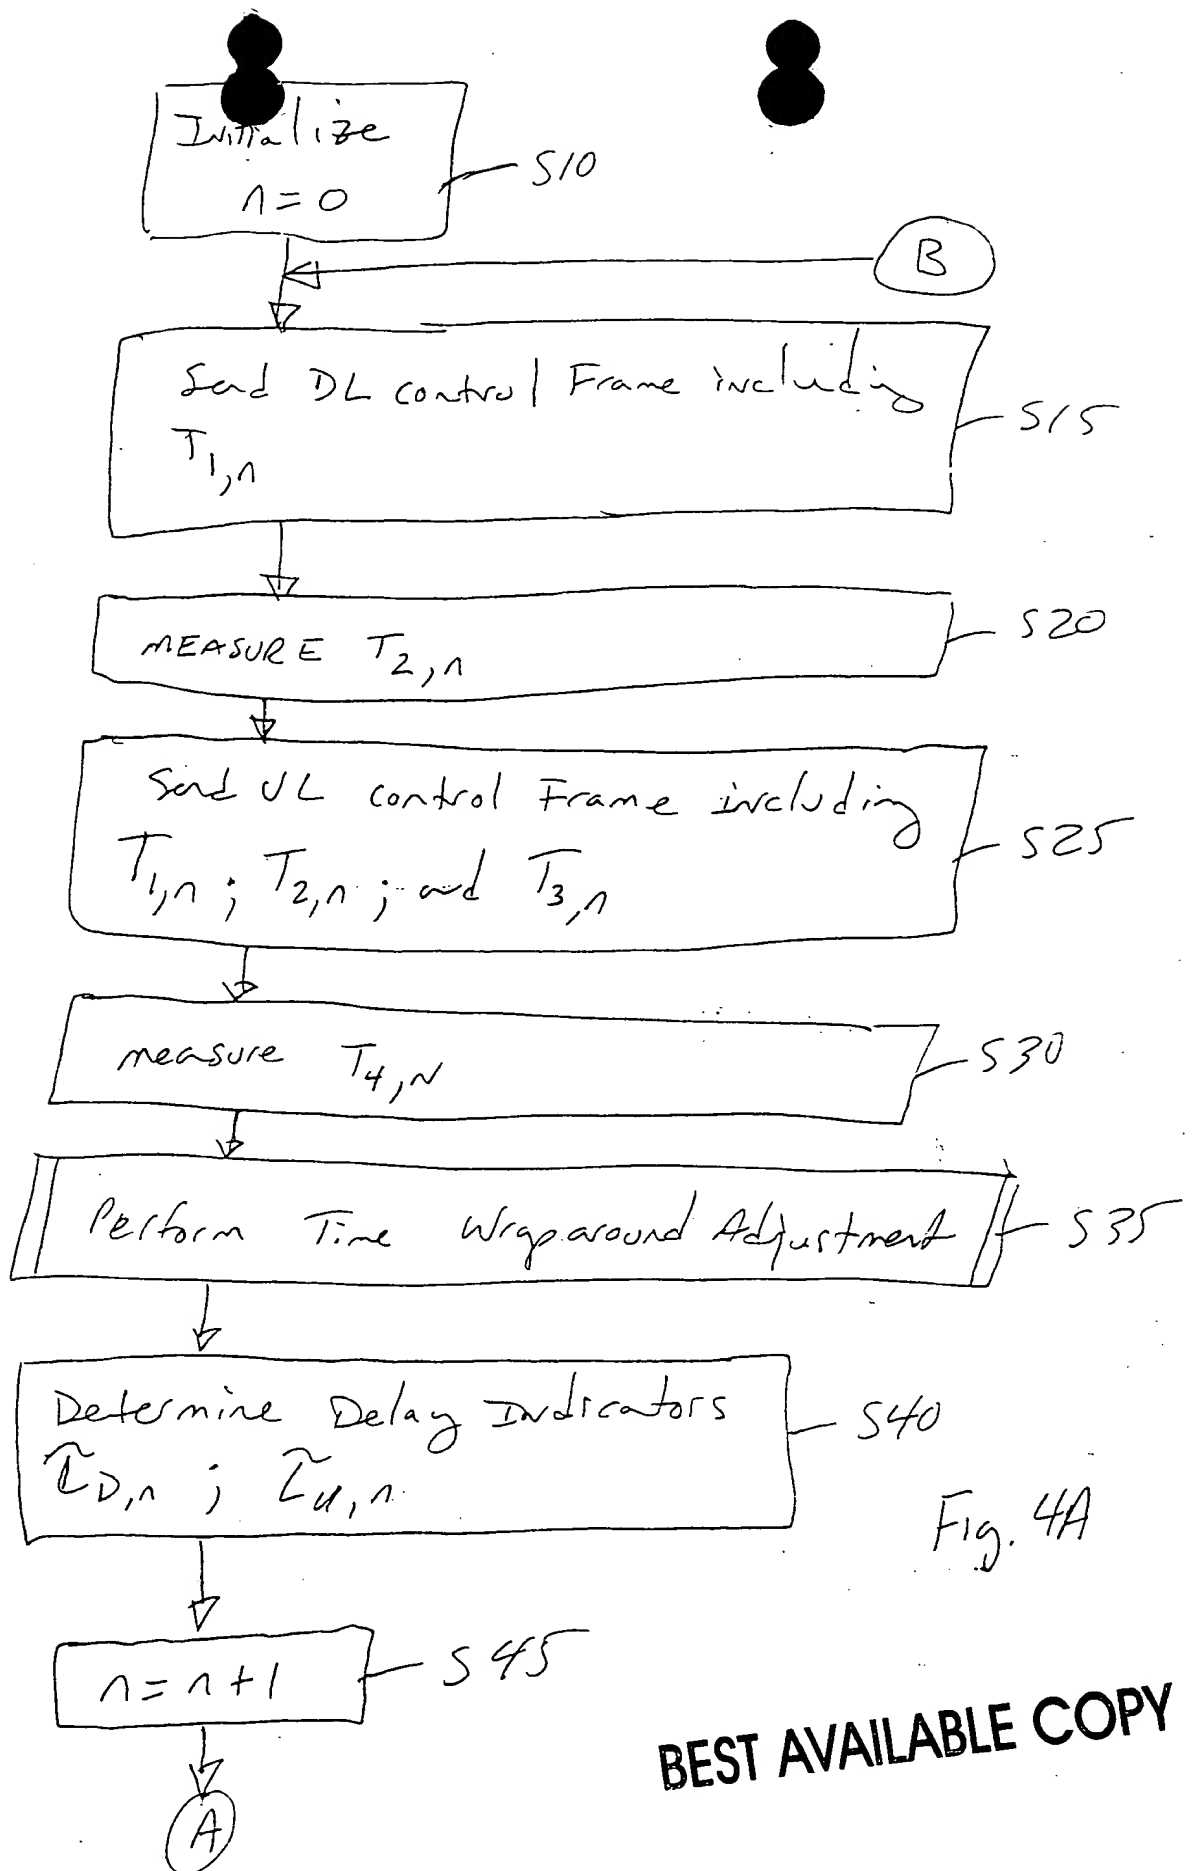 Initialize
n = 0
S10
B
Send DL control Frame including
T1,n
S15
MEASURE T2,n
S20
Send UL control Frame including
T1,n ; T2,n ; and T3,n
S25
measure T4,N
S30
Perform Time Wraparound Adjustment
S35
Determine Delay Indicators
τ̃D,n ; τ̃u,n
S40
Fig. 4A
n = n + 1
S45
BEST AVAILABLE COPY
A